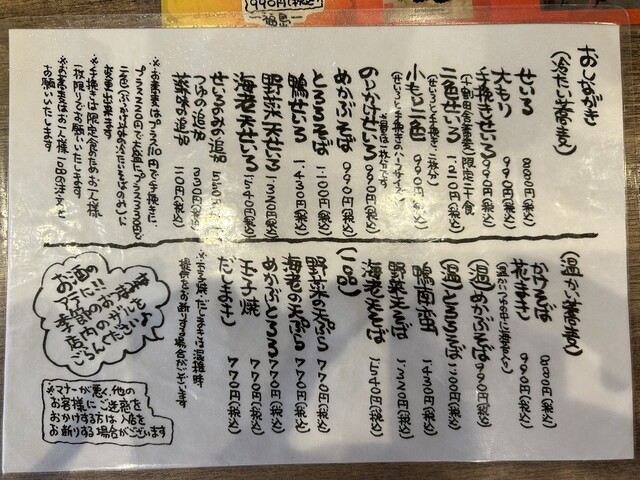 990円(税込)
福島
おしながき
(冷たい蕎麦)
せいろ 880円(税込)
大もり
手挽きせいろ 990円(税込)
(十割田舎蕎麦)限定二十食
二色せいろ 1210円(税込)
(せいろと手挽き 二枚分)
小もり二色 990円(税込)
のりかけせいろ 990円(税込)
めかぶそば 990円(税込)
とろろそば 1100円(税込)
鴨せいろ 1430円(税込)
野菜天せいろ 1320円(税込)
海老天せいろ 1540円(税込)
せいろのみの追加
つゆの追加 330円(税込)
薬味の追加 110円(税込)
※お蕎麦はプラス110円で手挽きに
変更出来ます
※手挽きは限定食のためお人様
一枚限りでお願いいたします
※お蕎麦はお一人様一品の注文を
お願いいたします
(温かい蕎麦)
かけそば 880円(税込)
花まき 990円(税込)
(温)めかぶそば 990円(税込)
(温)とろろそば 1100円(税込)
鴨南蛮 1430円(税込)
野菜天そば 1320円(税込)
海老天そば 1540円(税込)
(一品)
野菜の天ぷら 770円(税込)
海老の天ぷら 770円(税込)
めかぶとろろ 770円(税込)
玉子焼 770円(税込)
だしまき 770円(税込)
※玉子焼・だしまきは混雑時
提供をお断りする場合がございます
お酒の
アテに!!
季節のお品書は
店内のザルを
ごらんください♪
※マナーが悪く、他の
お客様にご迷惑を
おかけする方は入店を
お断りする場合がございます